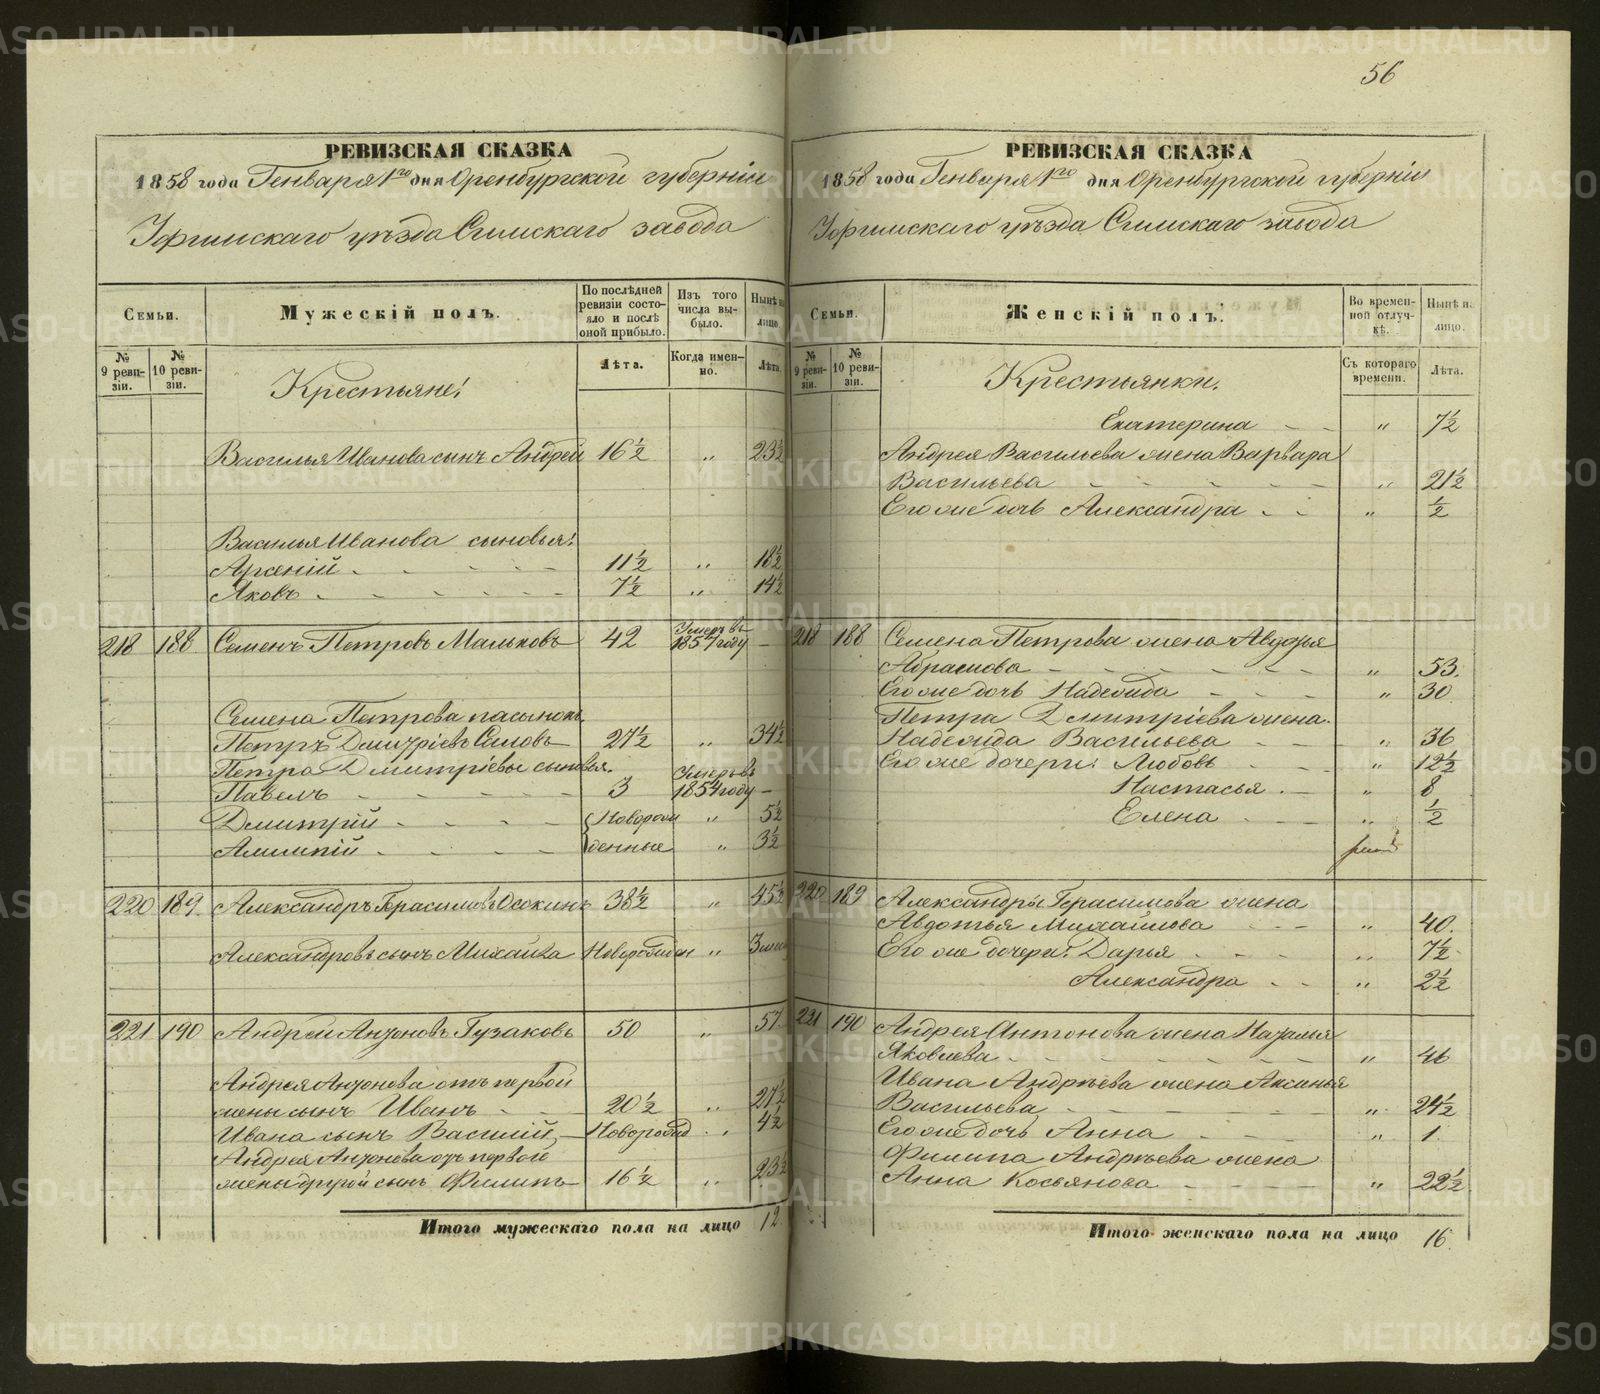 56
РЕВИЗСКАЯ СКАЗКА
1858 года Генваря 1го дня Оренбургской губерніи
Уфимскаго уѣзда Симскаго завода
Семьи.
Мужескій полъ.
По послѣдней ревизіи состояло и послѣ оной прибыло.
Изъ того числа выбыло.
Нынѣ на лицо.
№ 9 ревизіи.
№ 10 ревизіи.
Лѣта.
Когда именно.
Лѣта.
Крестьяне:
Василья Иванова сынъ Андрей 16½ „ 23½
Василья Иванова сыновья:
Арсеній 11½ „ 18½
Яковъ 7½ „ 14½
218 188 Семенъ Петровъ Мальковъ 42 Умеръ въ 1857 году —
Семена Петрова пасынокъ
Петръ Дмитріевъ Симовъ 27½ „ 34½
Петра Дмитріевы сыновья.
Павелъ 3 Умеръ въ 1854 году —
Дмитрій Новорож „ 5½
Алимпій денные „ 3½
220 189. Александръ Герасимовъ Осокинъ 38½ „ 45½
Александровъ сынъ Михаила Новорожден „
221 190 Андрей Антоновъ Гузаковъ 50 „ 57
Андрея Антонова отъ первой
жены сынъ Иванъ 20½ „ 27½
Ивана сынъ Василій Новорожд „ 4½
Андрея Антонова отъ первой
жены другой сынъ Филипъ 16½ „ 23½
Итого мужескаго пола на лицо 12
РЕВИЗСКАЯ СКАЗКА
1858 года Генваря 1го дня Оренбургской губерніи
Уфимскаго уѣзда Симскаго завода
Семьи.
Женскій полъ.
Во временной отлучкѣ.
Нынѣ на лицо.
№ 9 ревизіи.
№ 10 ревизіи.
Съ котораго времени.
Лѣта.
Крестьянки.
Екатерина „ 7½
Андрея Васильева жена Варвара
Васильева „ 21½
Его же дочь Александра „ ½
218 188 Семена Петрова жена Авдотья
Абрамова „ 53.
Его же дочь Надежда „ 30
Петра Дмитріева жена
Надежда Васильева „ 36
Его же дочери: Любовь „ 12½
Настасья „ 8
Елена „ ½
220 189 Александры Герасимова жена
Авдотья Михайлова „ 40.
Его же дочери: Дарья „ 7½
Александра „ 2½
221 190 Андрея Антонова жена Наталья
Яковлева „ 46
Ивана Андрѣева жена Аксинья
Васильева „ 24½
Его же дочь Анна „ 1
Филипа Андрѣева жена
Анна Косьянова „ 22½
Итого женскаго пола на лицо 16.
METRIKI.GASO-URAL.RU